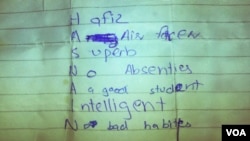 H afiz
A Air facen
S uperb
N o Absenties
A a good student
I ntelligent
N o bad habbits
VOA